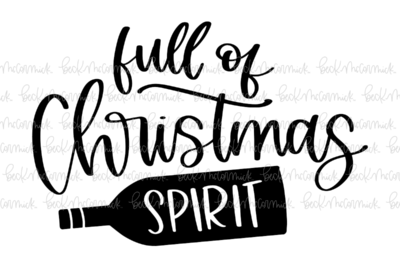 full of
Christmas
SPIRIT